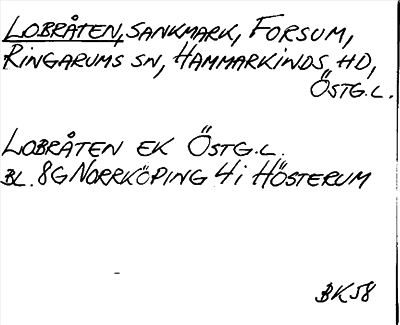 LOBRÅTEN, SANKMARK, FORSUM,
RINGARUMS SN, HAMMARKINDS HD,
ÖSTG.L.
LOBRÅTEN EK ÖSTG.L.
BL. 8G NORRKÖPING 4i HÖSTERUM
BK58